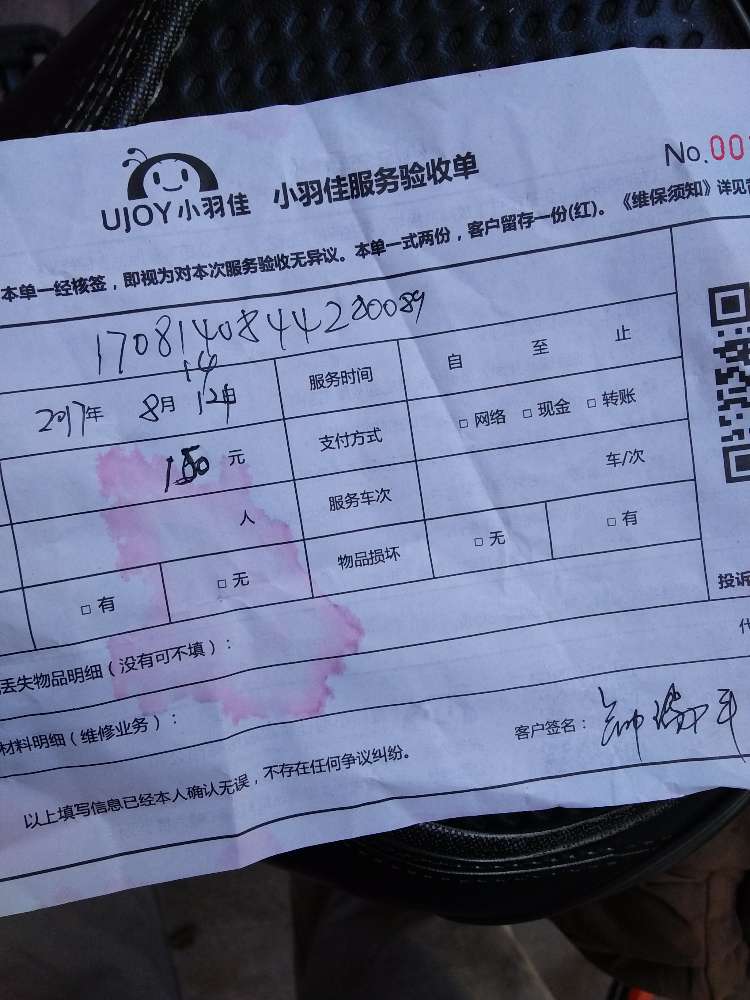 UJOY小羽佳 小羽佳服务验收单 No.00
本单一经核签，即视为对本次服务验收无异议。本单一式两份，客户留存一份(红)。《维保须知》详见
1708140844280089
14
2017年 8月 12日 服务时间 自 至 止
150元 支付方式 □ 网络 □ 现金 □ 转账
人 服务车次 车/次
□ 有 □ 无 物品损坏 □ 无 □ 有
投诉
丢失物品明细（没有可不填）：
材料明细（维修业务）：
客户签名：
以上填写信息已经本人确认无误，不存在任何争议纠纷。